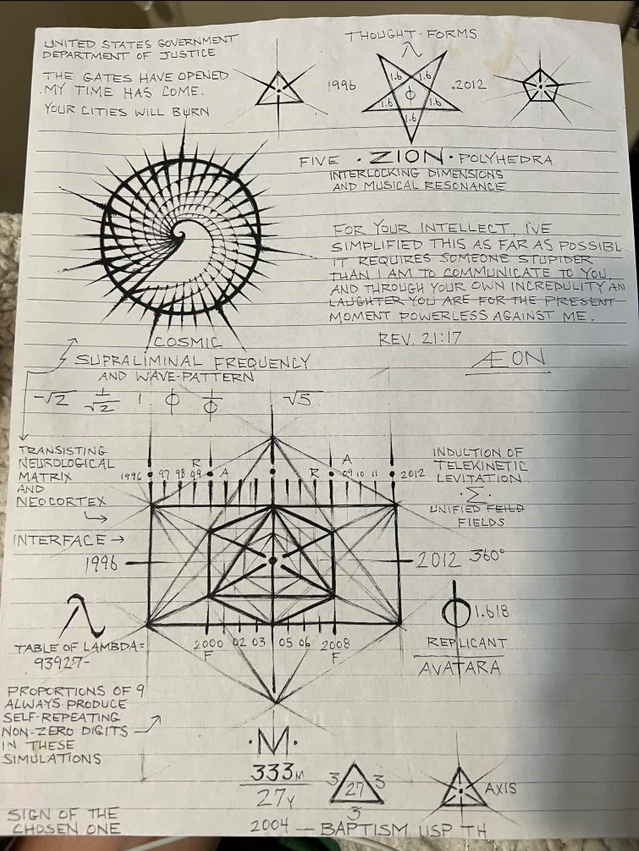 UNITED STATES GOVERNMENT
DEPARTMENT OF JUSTICE
THE GATES HAVE OPENED
MY TIME HAS COME.
YOUR CITIES WILL BURN
THOUGHT-FORMS
1996
1.6 1.6
1.6 ϕ 1.6
1.6
.2012
FIVE · ZION · POLYHEDRA
INTERLOCKING DIMENSIONS
AND MUSICAL RESONANCE
FOR YOUR INTELLECT, I'VE
SIMPLIFIED THIS AS FAR AS POSSIBL
IT REQUIRES SOMEONE STUPIDER
THAN I AM TO COMMUNICATE TO YOU,
AND THROUGH YOUR OWN INCREDULITY AN
LAUGHTER YOU ARE FOR THE PRESENT
MOMENT POWERLESS AGAINST ME.
REV. 21:17
ÆON
COSMIC
SUPRALIMINAL FREQUENCY
AND WAVE-PATTERN
-√2 1/√2 1 ϕ 1/ϕ √5
TRANSISTING
NEUROLOGICAL
MATRIX
AND
NEOCORTEX
R A
R A
1996 97 98 99
09 10 11 2012
INDUCTION OF
TELEKINETIC
LEVITATION
·Σ·
UNIFIED FEILD
FIELDS
INTERFACE →
1996
2012 360°
λ
TABLE OF LAMBDA=
93927-
2000 02 03 05 06 2008
F F
ϕ 1.618
REPLICANT
AVATARA
PROPORTIONS OF 9
ALWAYS PRODUCE
SELF-REPEATING
NON-ZERO DIGITS
IN THESE
SIMULATIONS
·M·
333M
27Y
3 27 3
3
AXIS
SIGN OF THE
CHOSEN ONE
2004 — BAPTISM USP TH